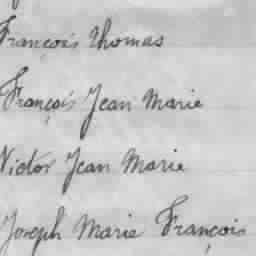 François Thomas
François Jean Marie
Victor Jean Marie
Joseph Marie François